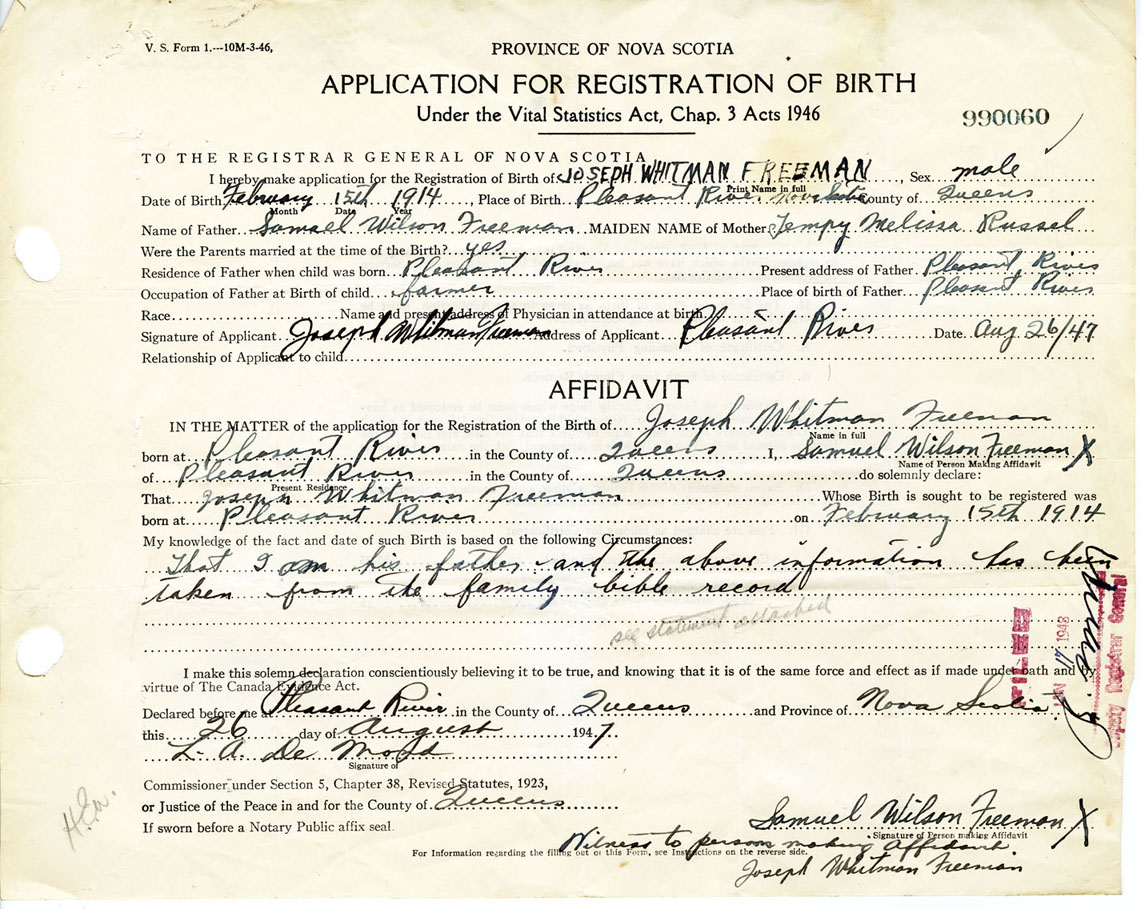 V. S. Form 1.---10M-3-46,
PROVINCE OF NOVA SCOTIA
APPLICATION FOR REGISTRATION OF BIRTH
Under the Vital Statistics Act, Chap. 3 Acts 1946
990060
TO THE REGISTRAR GENERAL OF NOVA SCOTIA
I hereby make application for the Registration of Birth of JOSEPH WHITMAN FREEMAN, Sex male
Print Name in full
Date of Birth February 15th 1914, Place of Birth Pleasant River Nova Scotia County of Queens
Month Date Year
Name of Father Samuel Wilson Freeman MAIDEN NAME of Mother Tempy Melissa Russel
Were the Parents married at the time of the Birth? yes
Residence of Father when child was born Pleasant River Present address of Father Pleasant River
Occupation of Father at Birth of child farmer Place of birth of Father Pleasant River
Race Name and present address of Physician in attendance at birth
Signature of Applicant Joseph Whitman Freeman Address of Applicant Pleasant River Date Aug 26/47
Relationship of Applicant to child
AFFIDAVIT
IN THE MATTER of the application for the Registration of the Birth of Joseph Whitman Freeman
Name in full
born at Pleasant River in the County of Queens I, Samuel Wilson Freeman X
Name of Person Making Affidavit
of Pleasant River in the County of Queens do solemnly declare:
Present Residence
That Joseph Whitman Freeman Whose Birth is sought to be registered was
born at Pleasant River on February 15th 1914
My knowledge of the fact and date of such Birth is based on the following Circumstances:
That I am his father and the above information has been
taken from the family bible record
see statement attached
FILED
JUN 17 1948
I make this solemn declaration conscientiously believing it to be true, and knowing that it is of the same force and effect as if made under oath and by
virtue of The Canada Evidence Act.
Declared before me at Pleasant River in the County of Queens and Province of Nova Scotia
this 26 day of August 1947
L. A. De Mond
Signature of
Commissioner under Section 5, Chapter 38, Revised Statutes, 1923,
or Justice of the Peace in and for the County of Queens
If sworn before a Notary Public affix seal.
Samuel Wilson Freeman X
Signature of Person making Affidavit
Witness to person making Affidavit
For Information regarding the filling out of this Form, see Instructions on the reverse side.
Joseph Whitman Freeman